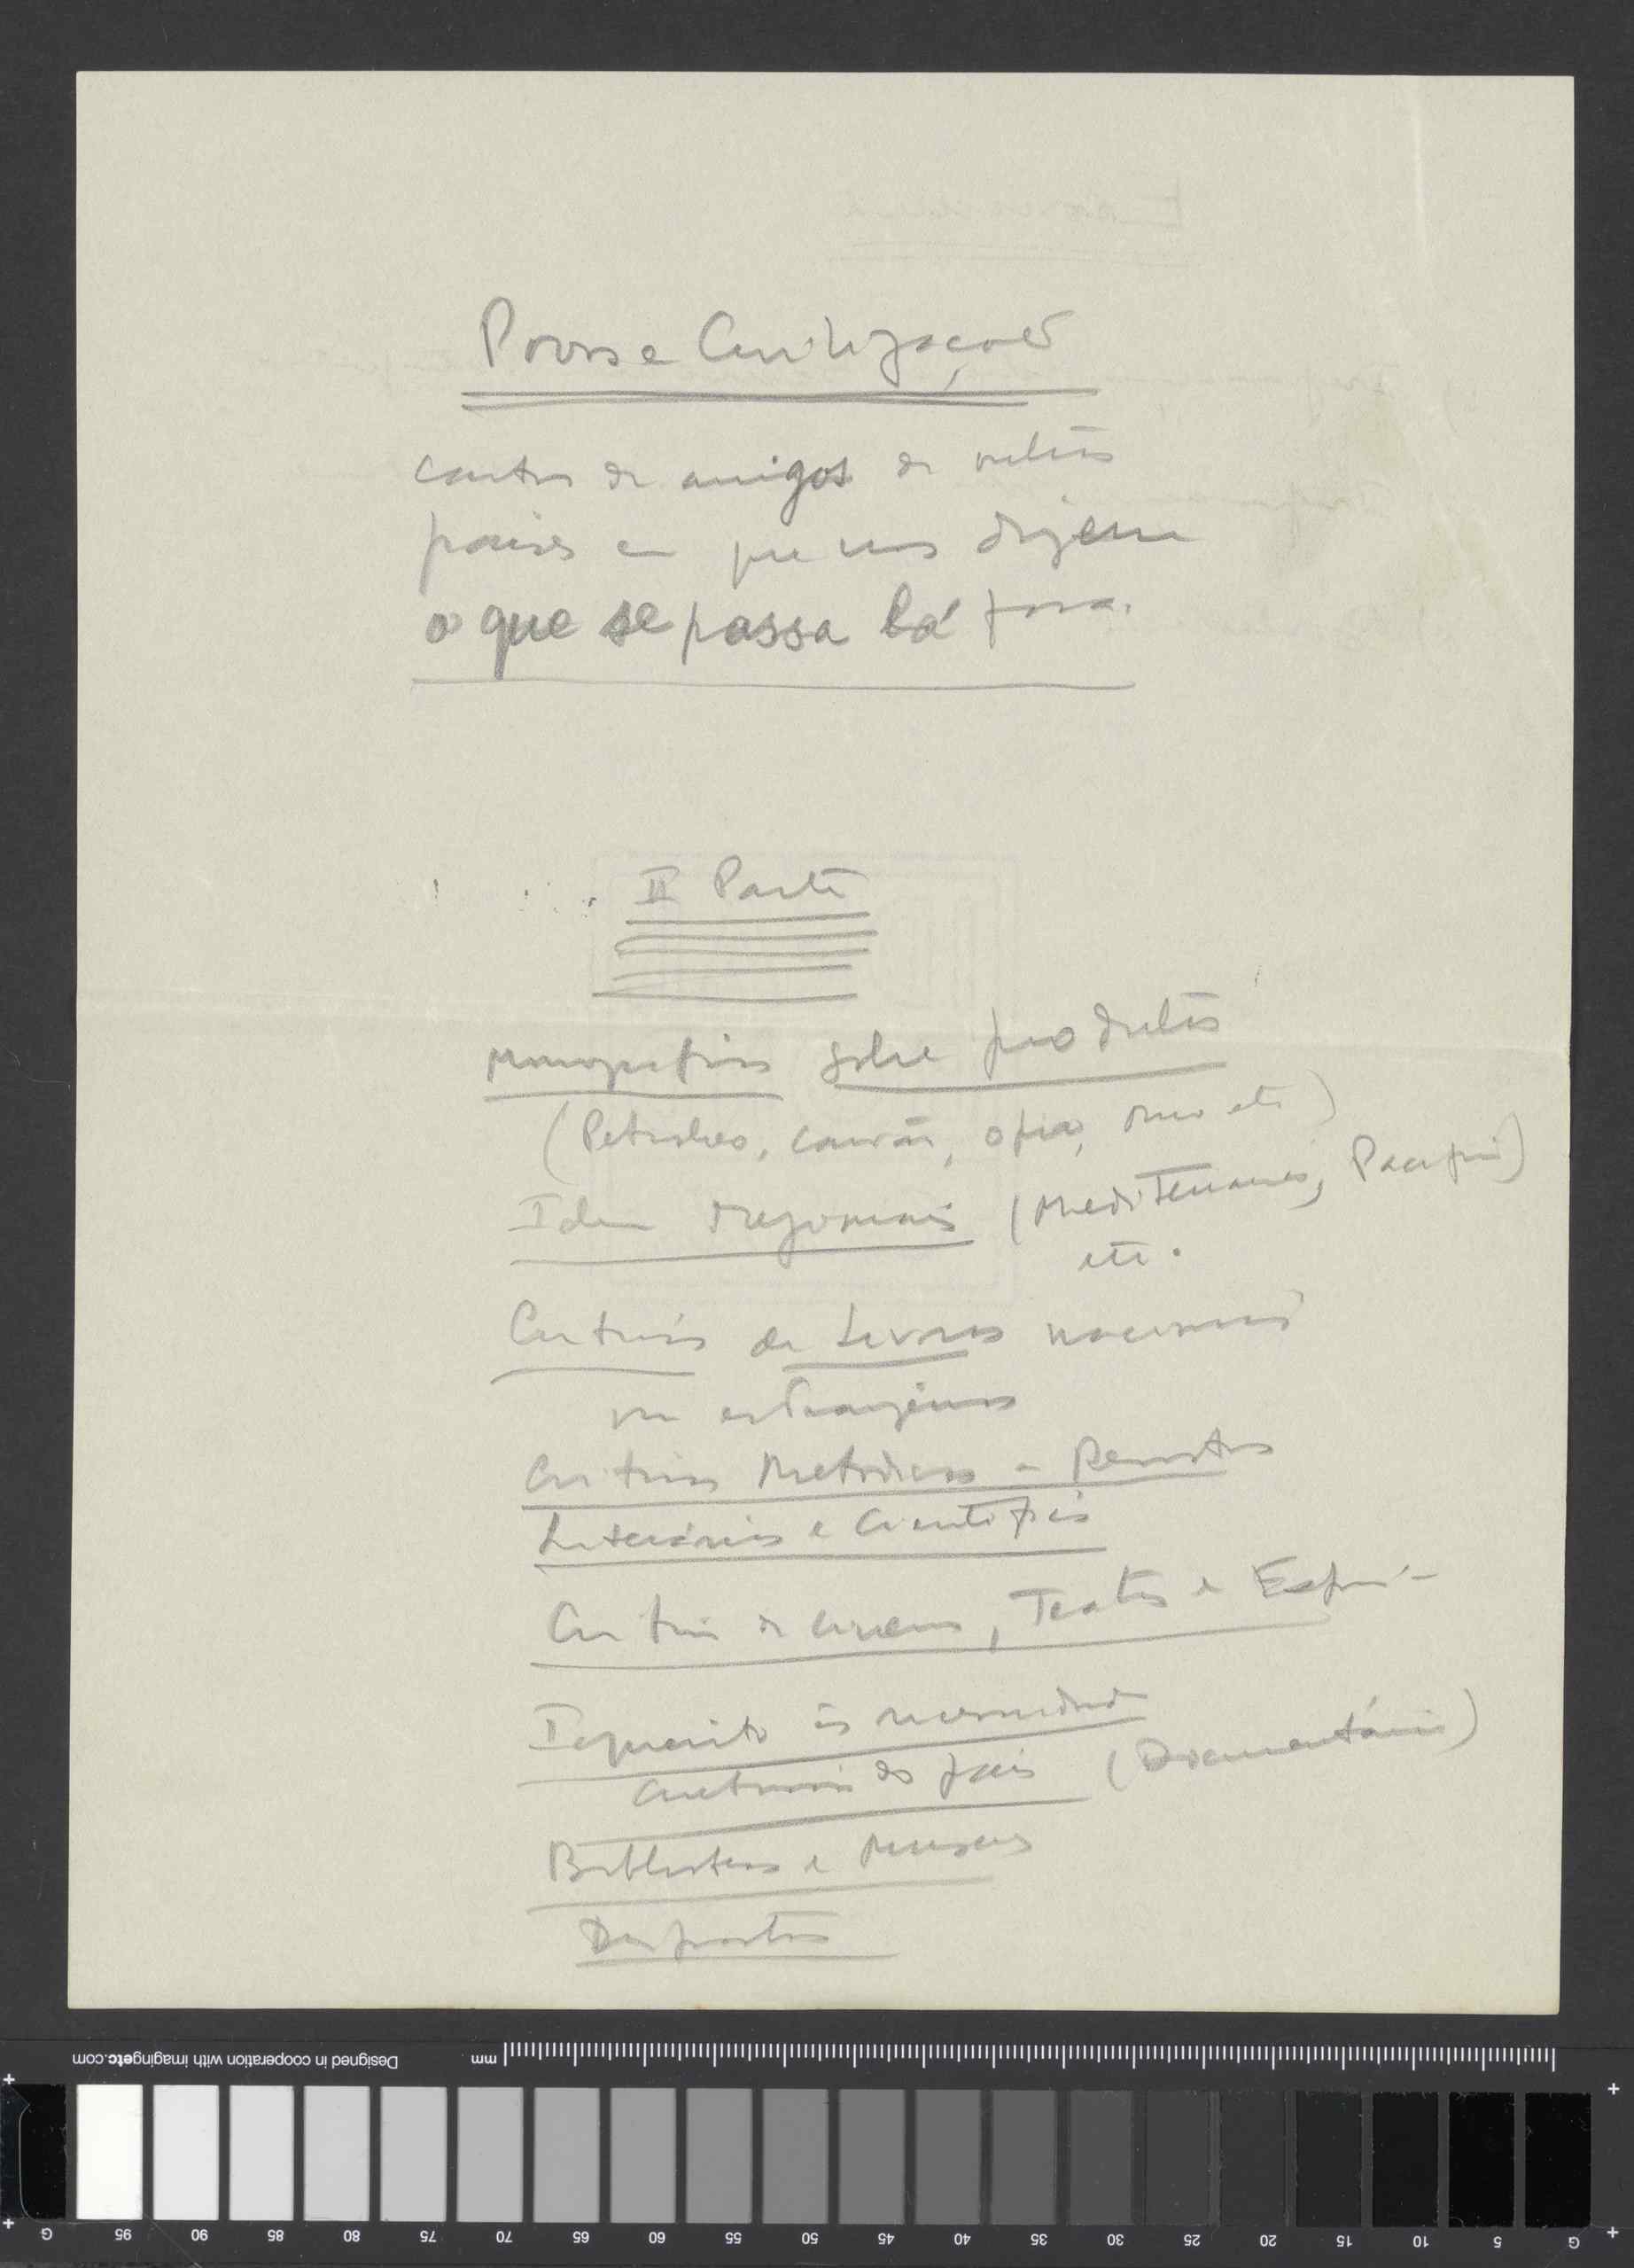 Povos e Civilizações
cartas de amigos de vários
países em que nos dizem
o que se passa lá fora.
II Parte
Monografias sobre produtos
(Petroleo, carvão, opio, ouro etc)
Idem regionais (Mediterraneo, Pacifico)
etc.
Criticas de Livros nacionais
ou estrangeiros
Criticas Revistas
Literárias e Cientificas
Critica de cinema, Teatro e
Inquerito ás necessidades
culturais do país (Documentário)
Bibliotecas e Museus
Desportos
Designed in cooperation with imagingetc.com
mm
G 95 90 85 80 75 70 65 60 55 50 45 40 35 30 25 20 15 10 5 G